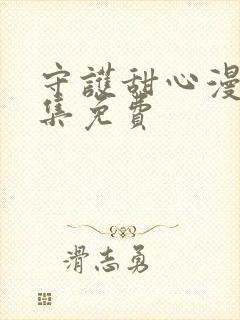 守護甜心漫
集免費
滑志勇